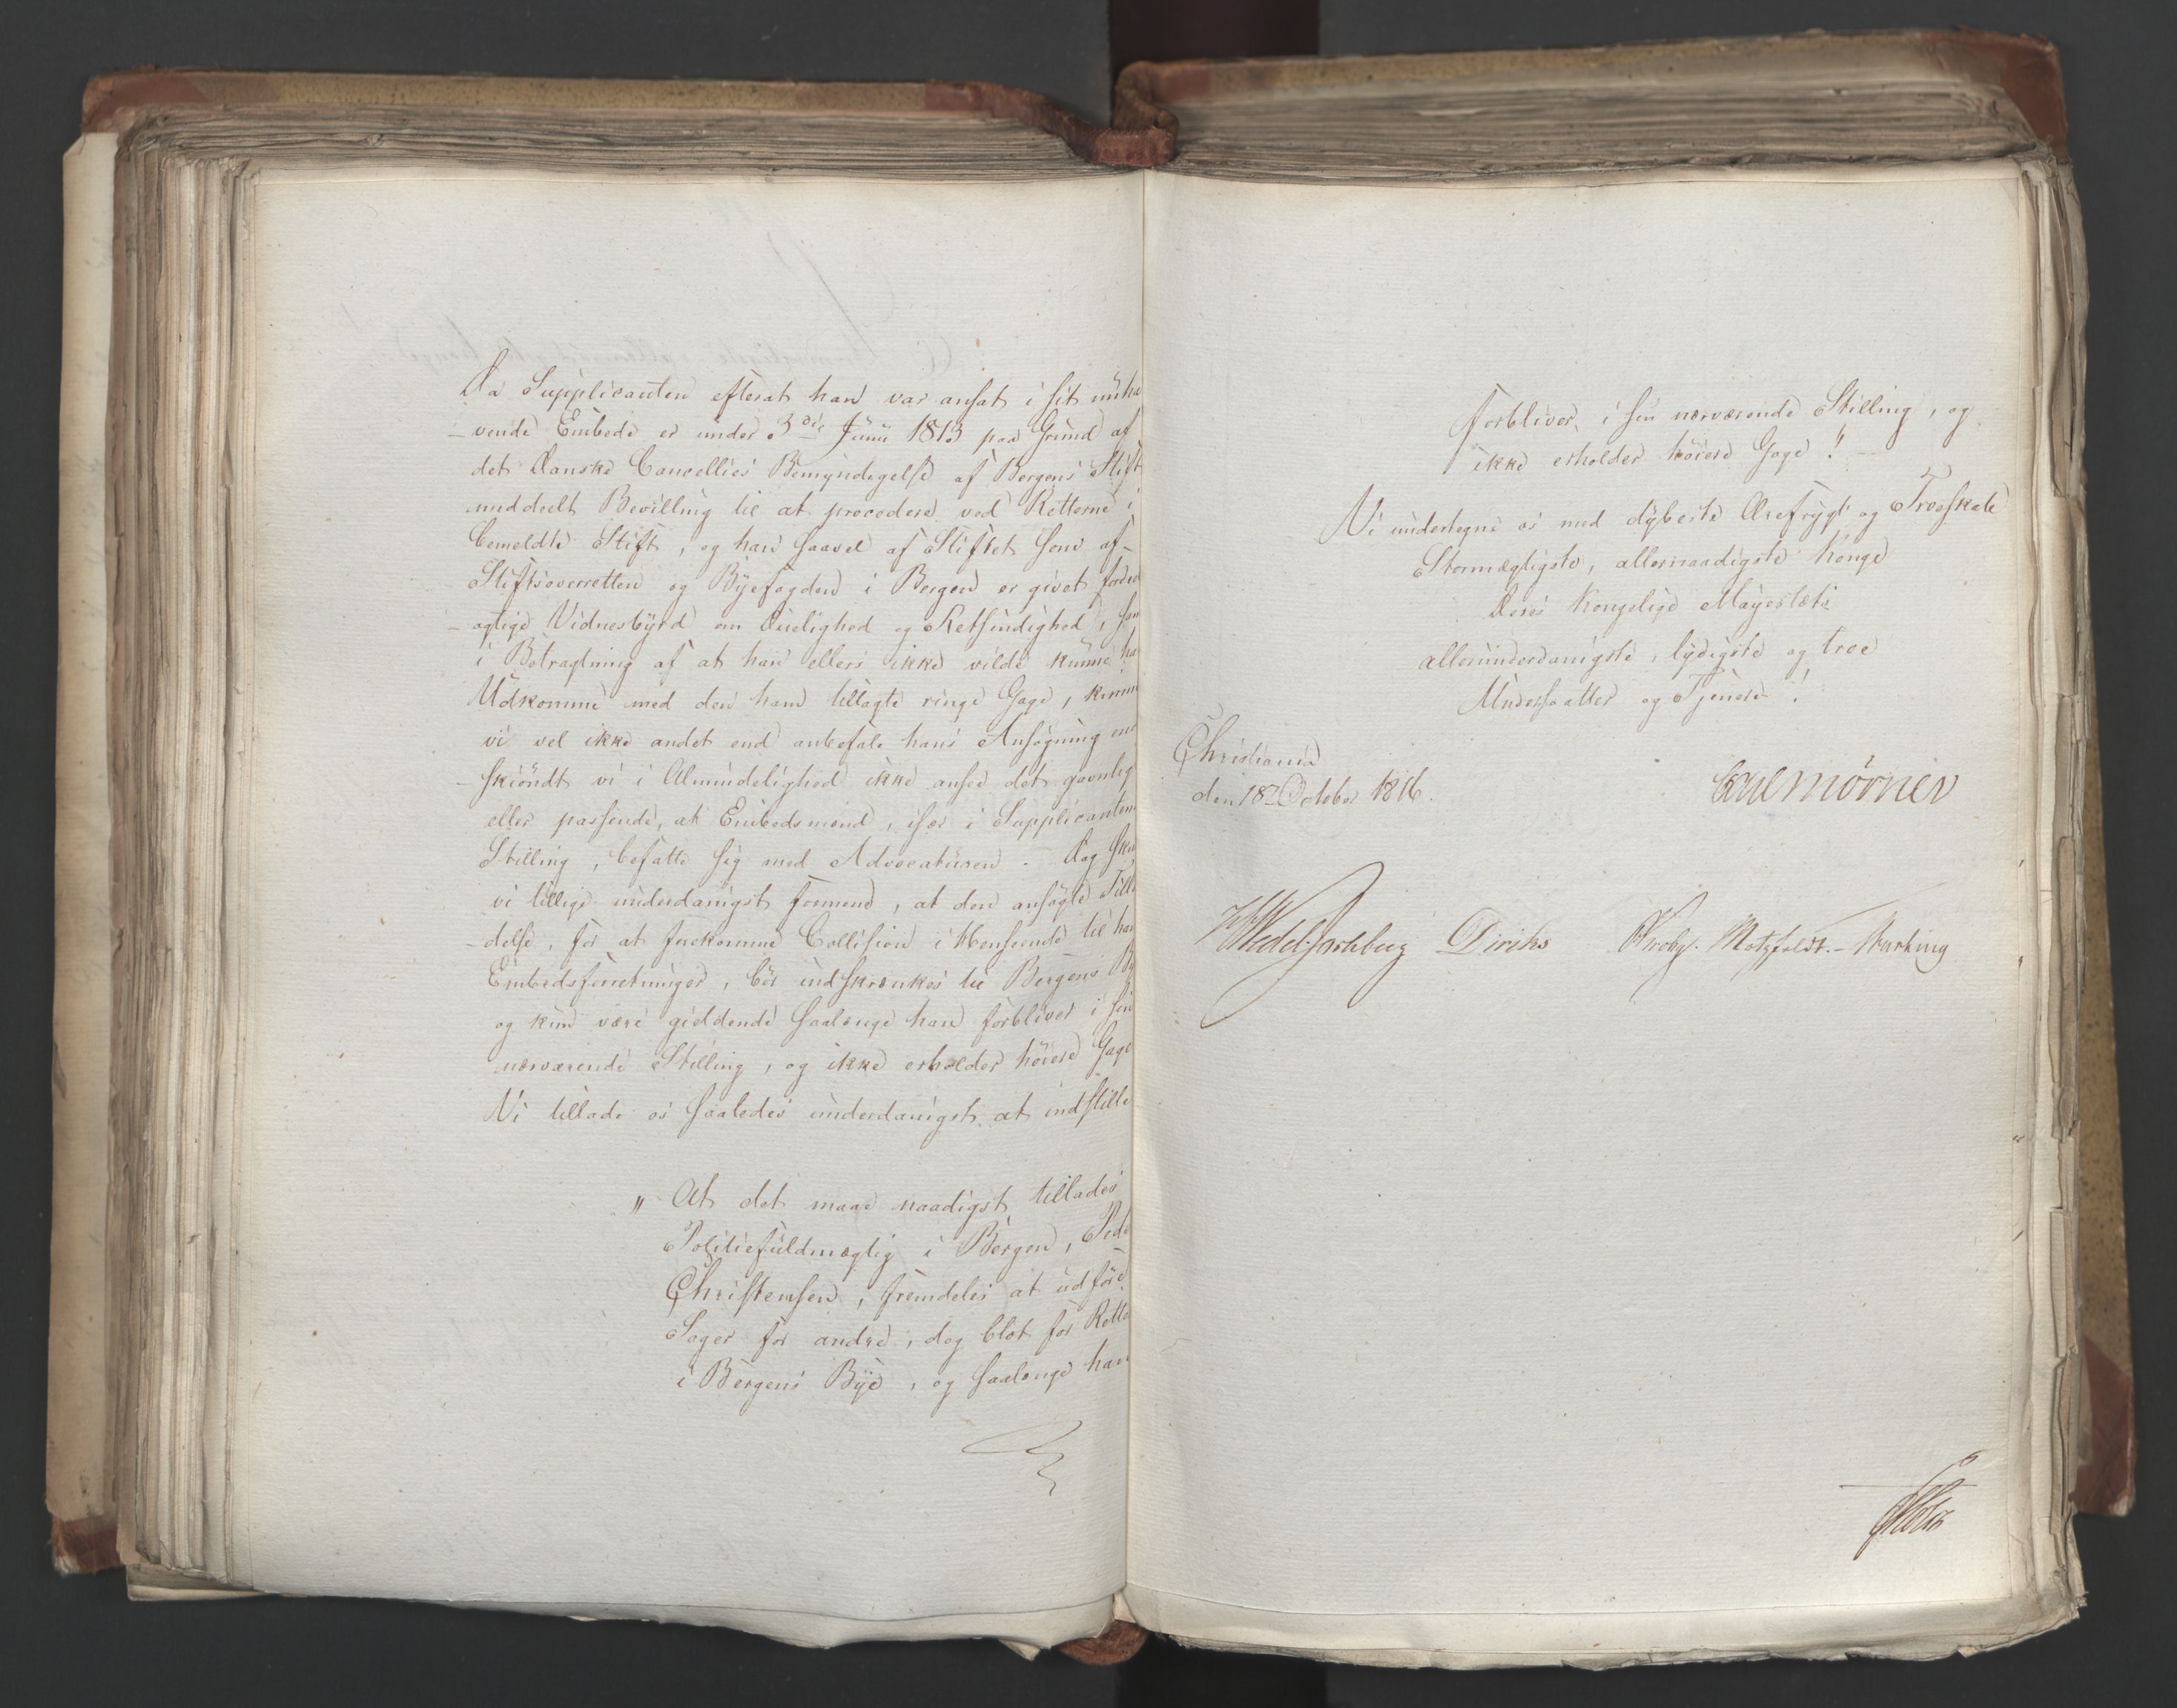 Da Supplicanten efterat han var ansat i sit nuha
-vende Embede er under 3die Junii 1813 paa Grund af
det Danske Cancellies Bemyndigelse af Bergens Stift
meddeelt Bevilling til at procedere ved Retterne i
bemeldte Stift, og han saavel af Stiftet som af
Stiftsoverretten og Byefogden i Bergen er givet fordeel
-agtige Vidnesbyrd om Duelighed og Retsindighed, som
i Betragtning af at han ellers ikke vilde kunne ha
Udkomme med den ham tillagte ringe Gage, kunne
vi vel ikke andet end anbefale hans Ansøgning end
-skiöndt vi i Almindelighed ikke ansee det gavnlig
eller passende, at Embedsmænd, især i Supplicantens
Stilling, befatte sig med Advocaturen. Dog skul
vi tillige underdanigst formene, at den ansøgte Tilla
-delse, for at forekomme Collision i Henseende til han
Embedsforretninger, bör indskrænkes til Bergens By
og kun være gieldende saalænge han forbliver i sin
nærværende Stilling, og ikke erholder höiere Gage
Vi tillade os saaledes underdanigst at indstille
„ At det maae naadigst tillades
Politiefuldmægtig i Bergen, Peder
Christensen, fremdeles at udföre
Sager for andre, dog blot for Rette
i Bergens Bye, og saalænge han
forbliver i sin nærværende Stilling, og
ikke erholder höiere Gage!"
Vi undertegne os med dybeste Ærefrygt og Troeskab
Stormægtigste, allernaadigste Konge
Deres Kongelige Mayestæts
allerunderdanigste, lydigste og troe
Undersaatter og Tjenere!
Christiania
den 18de October 1816.
Carl Mörner
HWedel Jarlsberg Diriks Krohg. Motzfeldt.